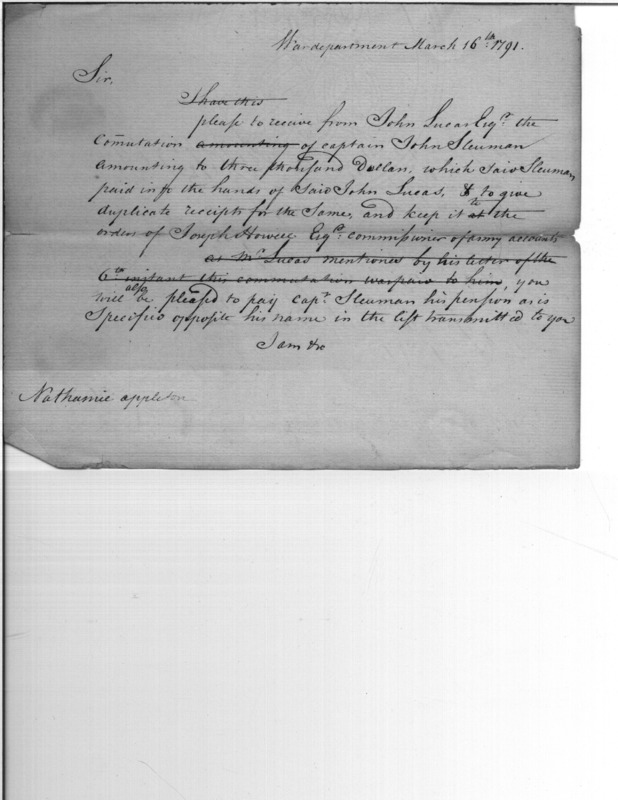 War department March 16th 1791.
Sir.
I have this
please to receive from John Lucas Esqr. the
Comutation amounting of captain John Sleuman
amounting to three thousand Dollars, which said Sleuman
paid into the hands of said John Lucas, & to give
duplicate receipts for the same, and keep it at the
orders of Joseph Howell Esqr. commissioner of army accounts
as Mr. Lucas mentioned by his letter of the
6th instant this commutation was paid to him, you
will also be pleased to pay capt. Sleuman his pension as is
Specified opposite his name in the list transmitted to you
I am &c
Nathaniel appleton